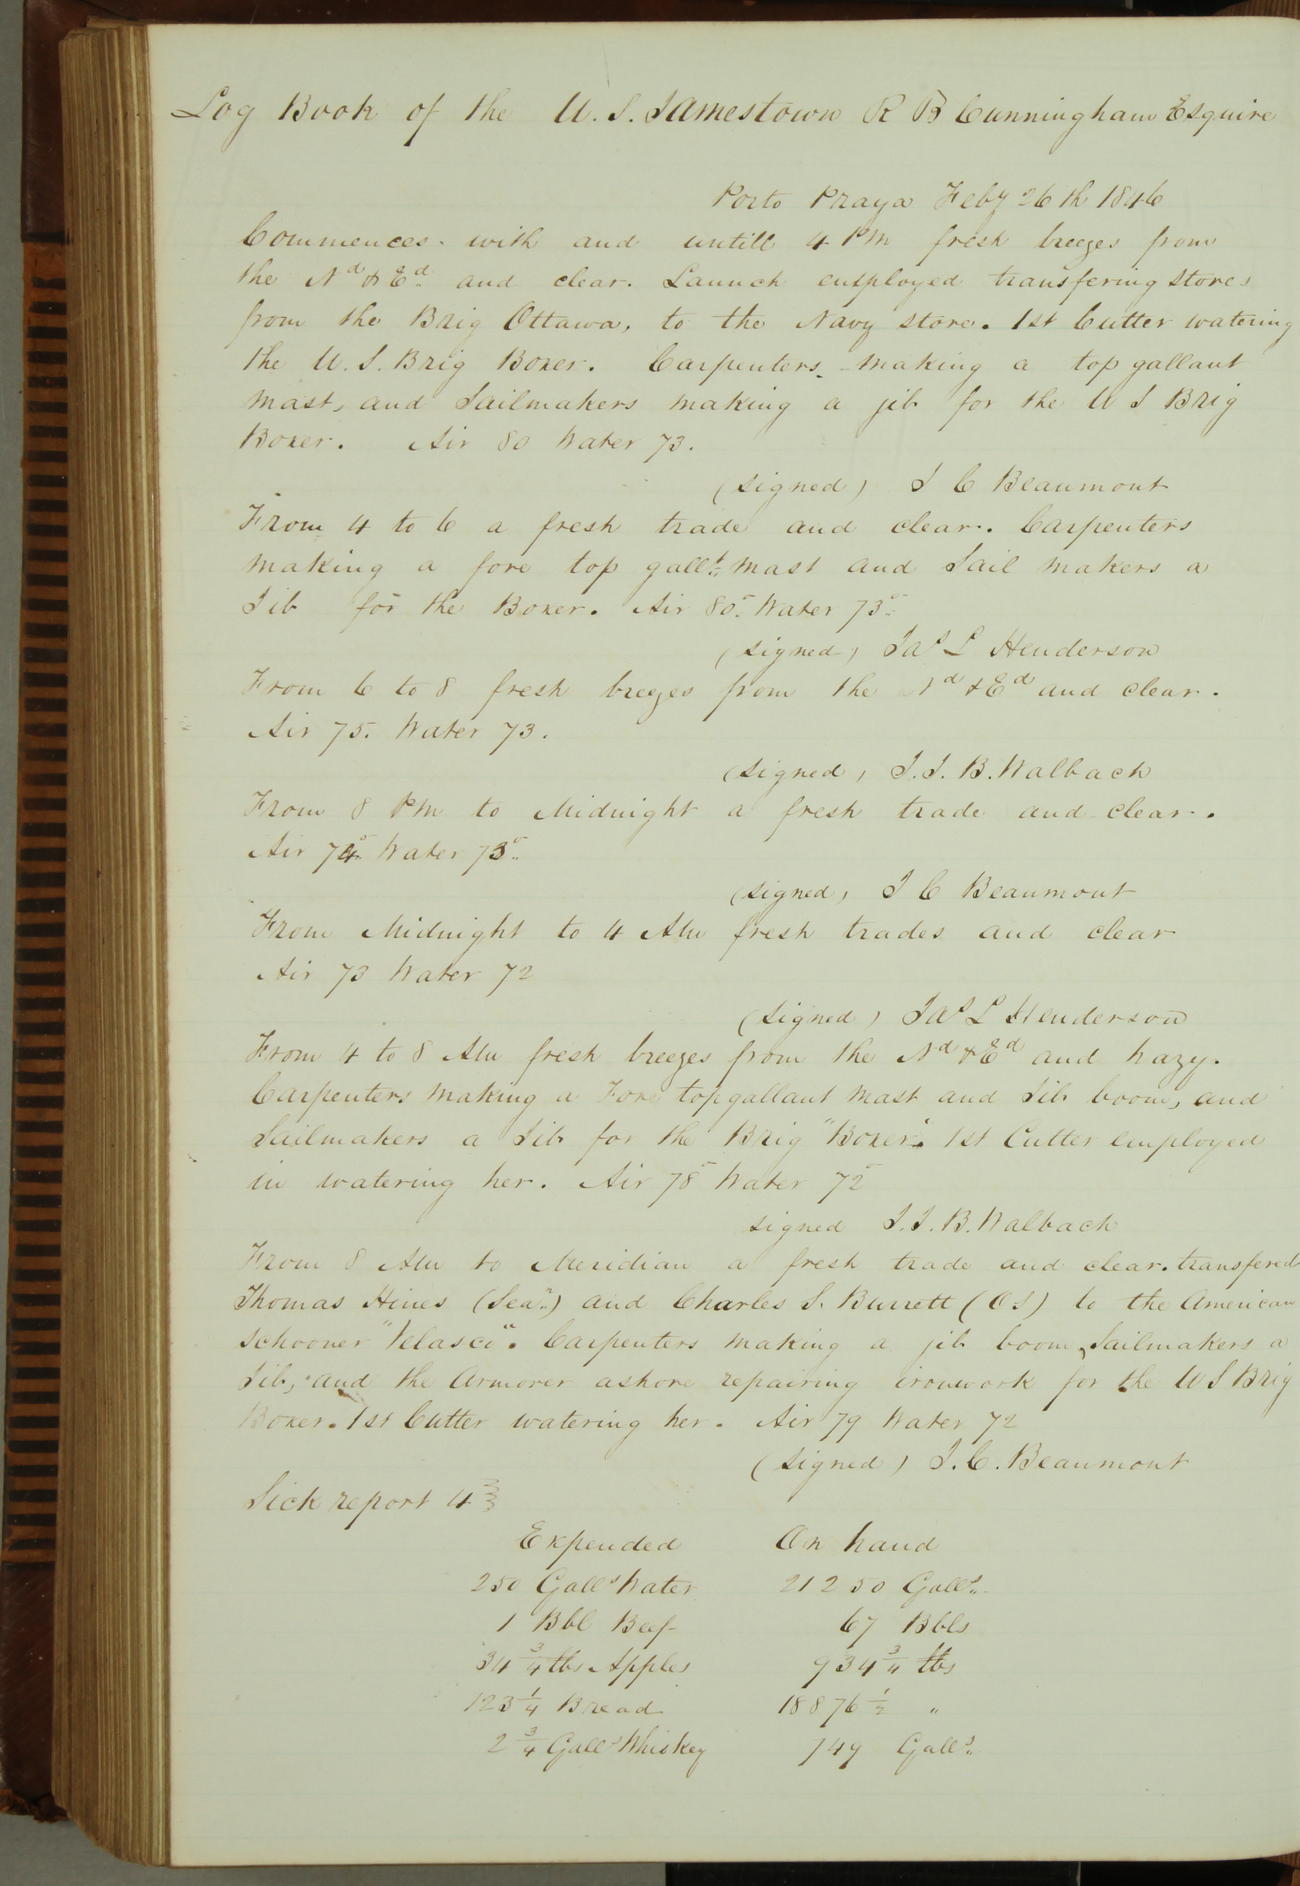 Log Book of the U. S. Jamestown R B Cunningham Esquire
Porto Praya Feby 26th 1846
Commences with and untill 4 PM fresh breezes from
the Nd & Ed and clear. Launch employed transfering stores
from the Brig Ottawa, to the Navy store. 1st Cutter watering
the U. S. Brig Boxer. Carpenters making a top gallant
mast, and Sailmakers making a jib for the U S Brig
Boxer. Air 80 Water 73.
(signed) J C Beaumont
From 4 to 6 a fresh trade and clear. Carpenters
making a fore top gallt mast and Sail makers a
Jib for the Boxer. Air 80° Water 73°
(signed) Jas L Henderson
From 6 to 8 fresh breezes from the Nd & Ed and clear.
Air 75. Water 73.
(signed) J. J. B. Walbach
From 8 PM to Midnight a fresh trade and clear.
Air 74° Water 73°
(signed) J C Beaumont
From Midnight to 4 AM fresh trades and clear
Air 73 Water 72
(signed) Jas L Henderson
From 4 to 8 AM fresh breezes from the Nd & Ed and hazy.
Carpenters making a Fore topgallant mast and Jib boom, and
Sailmakers a Jib for the Brig "Boxer". 1st Cutter employed
in watering her. Air 78° Water 72°
signed J. J. B. Walbach
From 8 AM to Meridian a fresh trade and clear. transfered
Thomas Hines (Sean) and Charles S. Burrett (OS) to the American
Schooner "Velasco". Carpenters making a jib boom, Sailmakers a
Jib, and the Armorer ashore repairing ironwork for the U S Brig
Boxer. 1st Cutter watering her. Air 79 Water 72
(signed) J. C. Beaumont
Sick report 4
Expended On hand
250 Galls Water 21250 Galls
1 Bbl Beef 67 Bbls
34 3/4 lbs Apples 934 3/4 lbs
123 1/4 Bread 18876 1/2 "
2 3/4 Galls Whiskey 749 Galls